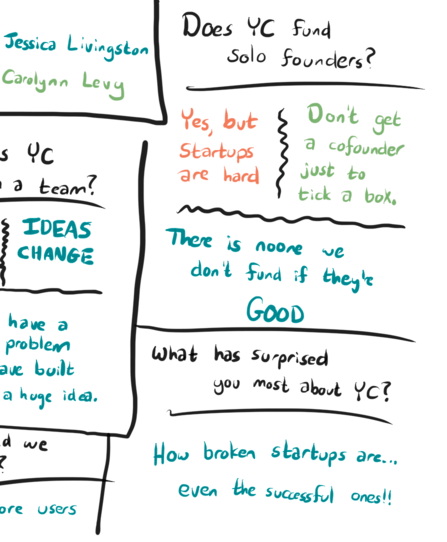 Jessica Livingston
Carolynn Levy
YC
a team?
IDEAS
CHANGE
have a
problem
built
a huge idea.
we
?
users
Does YC fund
solo founders?
Yes, but
Startups
are hard
Don't get
a cofounder
just to
tick a box.
There is noone we
don't fund if they're
GOOD
What has surprised
you most about YC?
How broken startups are...
even the successful ones!!